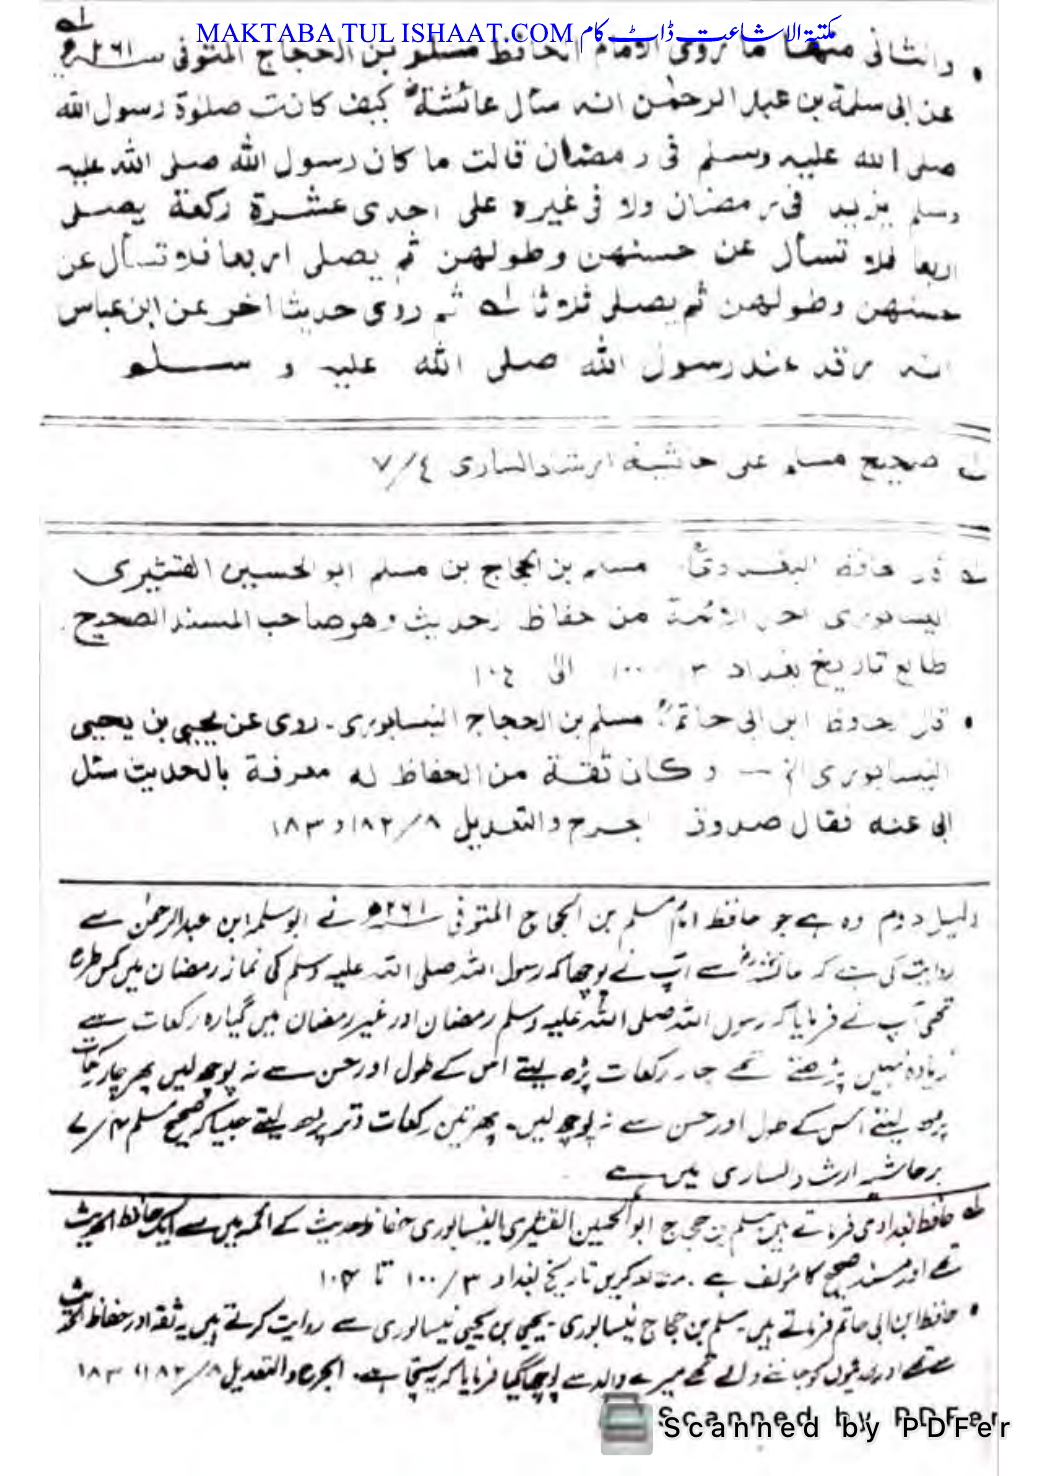 MAKTABA TUL ISHAAT.COM مکتبۃ الاشاعت ڈاٹ کام
• والثانی منها ما روی الامام الحافظ مسلم بن الحجاج المتوفی سنہ ۲۶۱ھ
عن ابی سلمة بن عبد الرحمٰن انه سأل عائشة کیف کانت صلوٰة رسول الله
صلی الله علیه وسلم فی رمضان قالت ما کان رسول الله صلی الله علیه
وسلم یزید فی رمضان ولا فی غیره علی احدی عشرة رکعة یصلی
اربعا فلا تسأل عن حسنهن وطولهن ثم یصلی اربعا فلا تسأل عن
حسنهن وطولهن ثم یصلی ثلاثا لـه ثم روی حدیث اخر عن ابن عباس
انه رقد عند رسول الله صلی الله علیه و سلم
لـه صحیح مسلم علی حاشیة ارشاد الساری ٤/٧
حافظ البغدادی مسلم بن الحجاج بن مسلم ابو الحسین القشیری
النیسابوری احد الائمة من حفاظ الحدیث وهو صاحب المسند الصحیح
طالع تاریخ بغداد ۳ ۱۰۰ الی ۱۰٤
• قال الحافظ ابن ابی حاتم مسلم بن الحجاج النیسابوری۔ روی عن یحیی بن یحیی
النیسابوری الخ — و کان ثقة من الحفاظ له معرفة بالحدیث سئل
ابی عنه فقال صدوق الجرح والتعدیل ۸/۱۸۲ و ۱۸۳
دلیل دوم وہ ہے جو حافظ امام مسلم بن الحجاج المتوفی سنہ ۲۶۱ھ نے ابوسلمہ ابن عبدالرحمٰن سے
روایت کی ہے کہ عائشہ سے آپ نے پوچھا کہ رسول اللہ صلی اللہ علیہ وسلم کی نماز رمضان میں کس طرح
تھی آپ نے فرمایا کہ رسول اللہ صلی اللہ علیہ وسلم رمضان اور غیر رمضان میں گیارہ رکعات سے
زیادہ نہیں پڑھتے تھے چار رکعات پڑھ لیتے اس کے طول اور حسن سے نہ پوچھ لیں پھر چار رکعات
پڑھ لیتے اس کے طول اور حسن سے نہ پوچھ لیں۔ پھر تین رکعات وتر پڑھ لیتے جیسا کہ صحیح مسلم ۷/۴
برحاشیہ ارشاد الساری میں ہے
لـه حافظ بغدادی فرماتے ہیں مسلم بن حجاج ابوالحسین القشیری النیسابوری حفاظ حدیث کے ائمہ میں سے ایک حافظ الحدیث
تھے اور مسند صحیح کا مؤلف ہے۔ تاریخ بغداد ۳/۱۰۰ تا ۱۰۴
• حافظ ابن ابی حاتم فرماتے ہیں مسلم بن حجاج نیسابوری۔ یحیی بن یحیی نیسابوری سے روایت کرتے ہیں یہ ثقہ اور حفاظ الحدیث
سے تھے اور کو جاننے والے تھے میرے والد سے پوچھا گیا فرمایا کہ یہ سچا ہے۔ الجرح والتعدیل ۸/۱۸۲، ۱۸۳
Scanned by PDFer
Scanned by PDFer